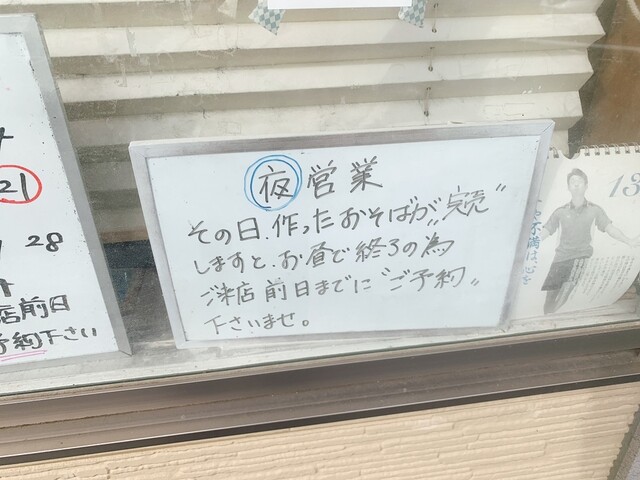 21
28
店前日
予約下さい
夜営業
その日、作ったおそばが、"完売"
しますと、お昼で終了の為
ご来店前日までに"ご予約"
下さいませ。
13
不満は、心を